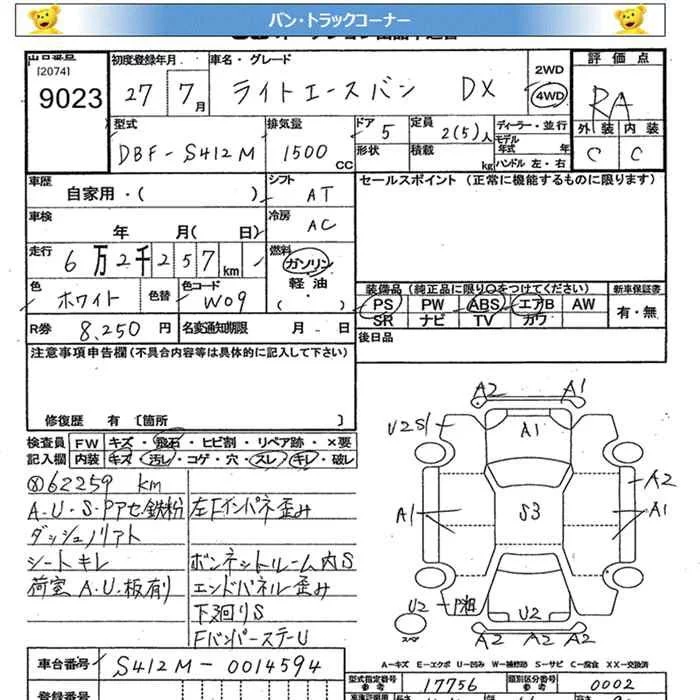 バン・トラックコーナー
出品番号
[2074]
9023
初度登録年月
27 7月
車名・グレード
ライトエースバン DX
2WD
4WD
評価点
RA
外装 内装
C C
型式
DBF-S412M
排気量
1500 CC
ドア
5
形状
定員
2(5)人
積載
kg
ディーラー・並行
モデル年式 年
ハンドル 左・右
車歴
自家用・( )
シフト
AT
セールスポイント (正常に機能するものに限ります)
車検
年 月( 日)
冷房
AC
走行
6万2千257km
燃料
ガソリン
軽油
( )
色
ホワイト
色替
色コード
W09
装備品(純正品に限り○をつけてください)
PS PW ABS エアB AW
SR ナビ TV カワ
新車保証書
有・無
R券 8,250円
名変通知期限 月 日
後日品
注意事項申告欄(不具合内容等は具体的に記入して下さい)
修復歴 有 [箇所 ]
検査員記入欄
FW キズ・飛石・ヒビ割・リペア跡・×要
内装 キズ・汚レ・コゲ・穴・スレ・キレ・破レ
62259 km
A.U.S.Pアセ.鉄粉
ダッシュノリアト
シートキレ
荷室A.U.板有り
左Fインパネ歪み
ボンネットルーム内S
エンドパネル歪み
下廻りS
FバンパーステーU
A2 A1
U2S1
A1
A2
A1
S3
A1
U2
スペア
U2
A2 A2 A2
A-キズ E-エクボ U-凹み W-補修跡 S-サビ C-腐食 XX-交換済
車台番号
S412M-0014594
型式指定番号
参考
17756
類別区分番号
参考
0002
登録番号